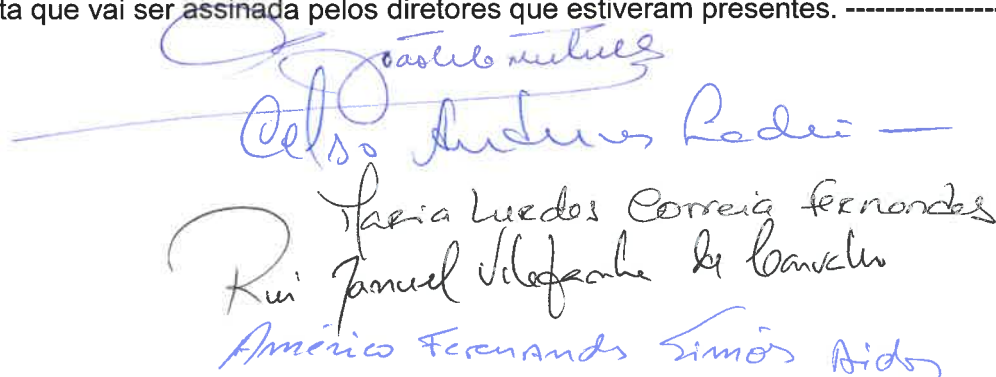 ta que vai ser assinada pelos diretores que estiveram presentes. ----------------
Celso Antunes
Maria Lurdes Correia Fernandes
Rui Manuel Vilafranca de Carvalho
Américo Fernando Simões Aidos